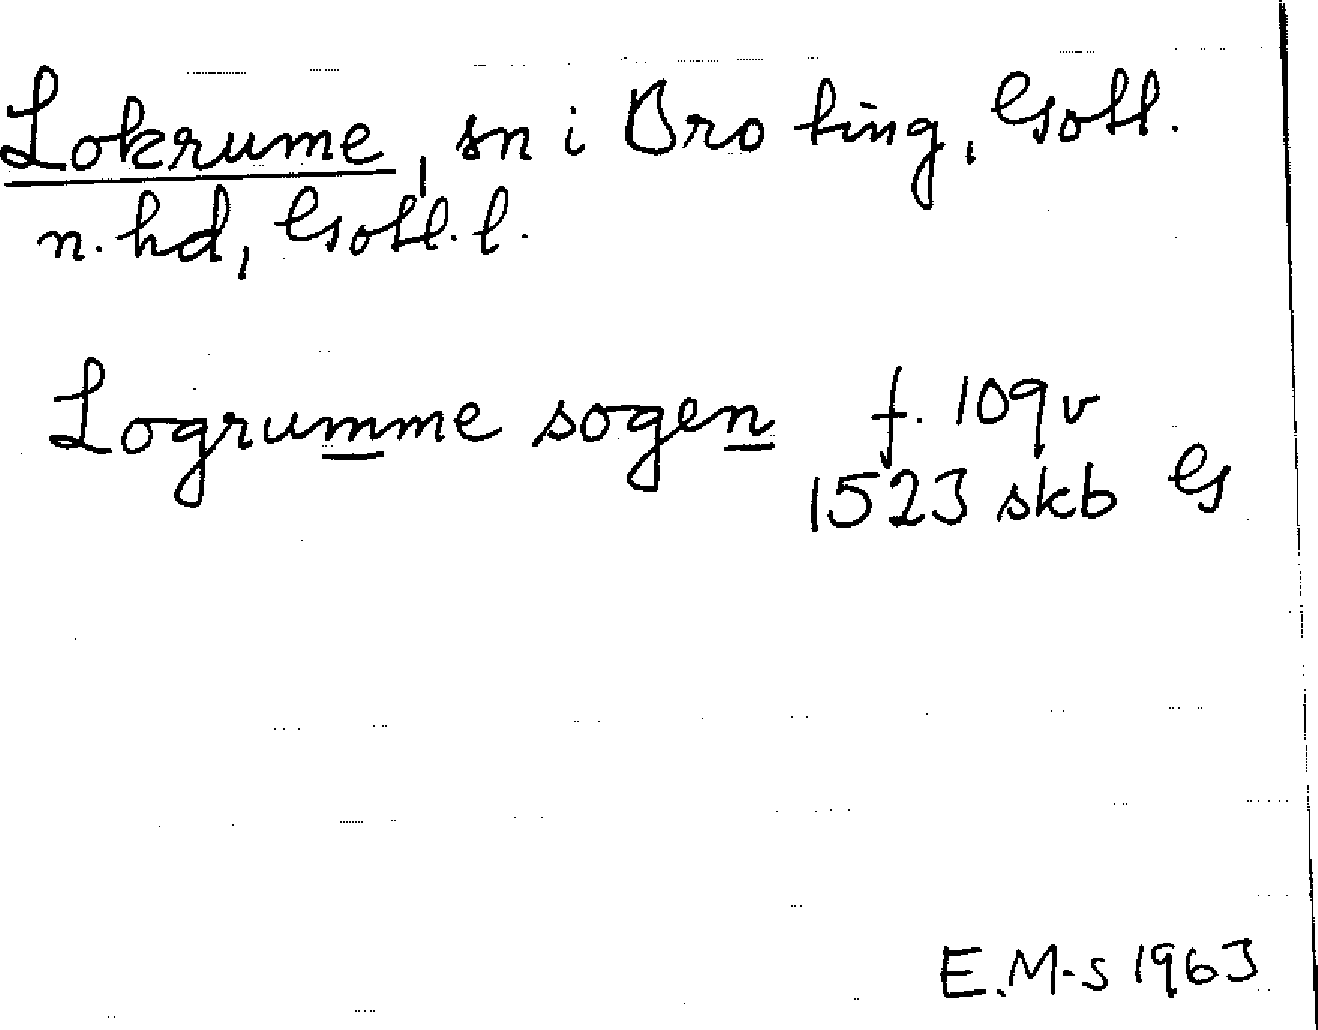 Lokrume, sn i Bro ting, Gotl.
n. hd, Gotl. l.
Logrumme sogen f. 109v
1523 skb G
E.M-s 1963